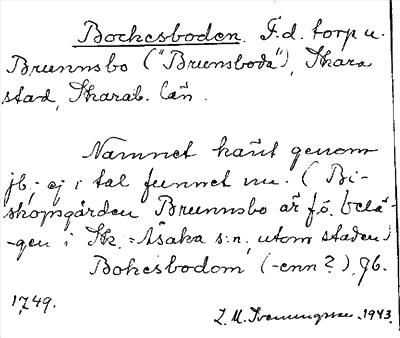 Bockesboden. F.d. torp u.
Brunnsbo ("Brunsboda"), Skara
stad, Skarab. län.
Namnet känt genom
jb, - ej i tal funnet nu. (Bi-
skopsgården Brunnsbo är f.ö. belä-
-gen i Sk.-Åsaka s:n, utom staden)
Bokesbodom (-enn?), Jb.
1749.
L. M. Svenungsson 1943.